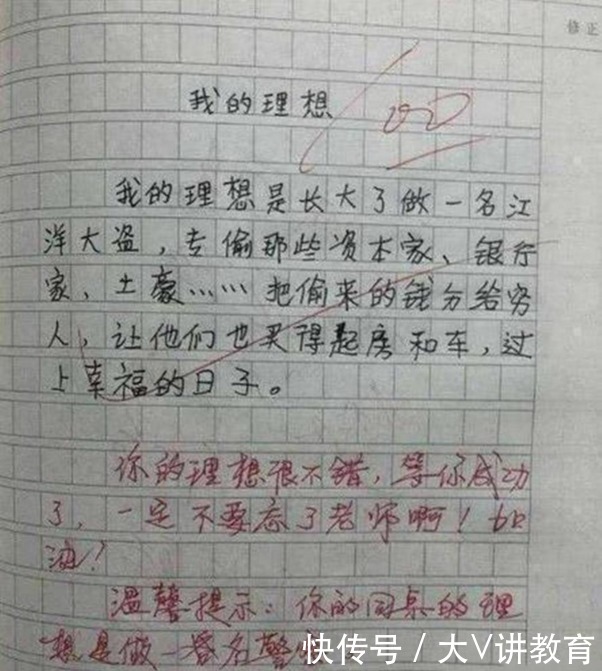 修正
我的理想
我的理想是长大了做一名江
洋大盗，专偷那些资本家、银行
家、土豪……把偷来的钱分给穷
人，让他们也买得起房和车，过
上幸福的日子。
你的理想很不错，等你成功
了，一定不要忘了老师啊！加
油！
温馨提示：你的同桌的理
想是做一名警
快传号 / 大V讲教育